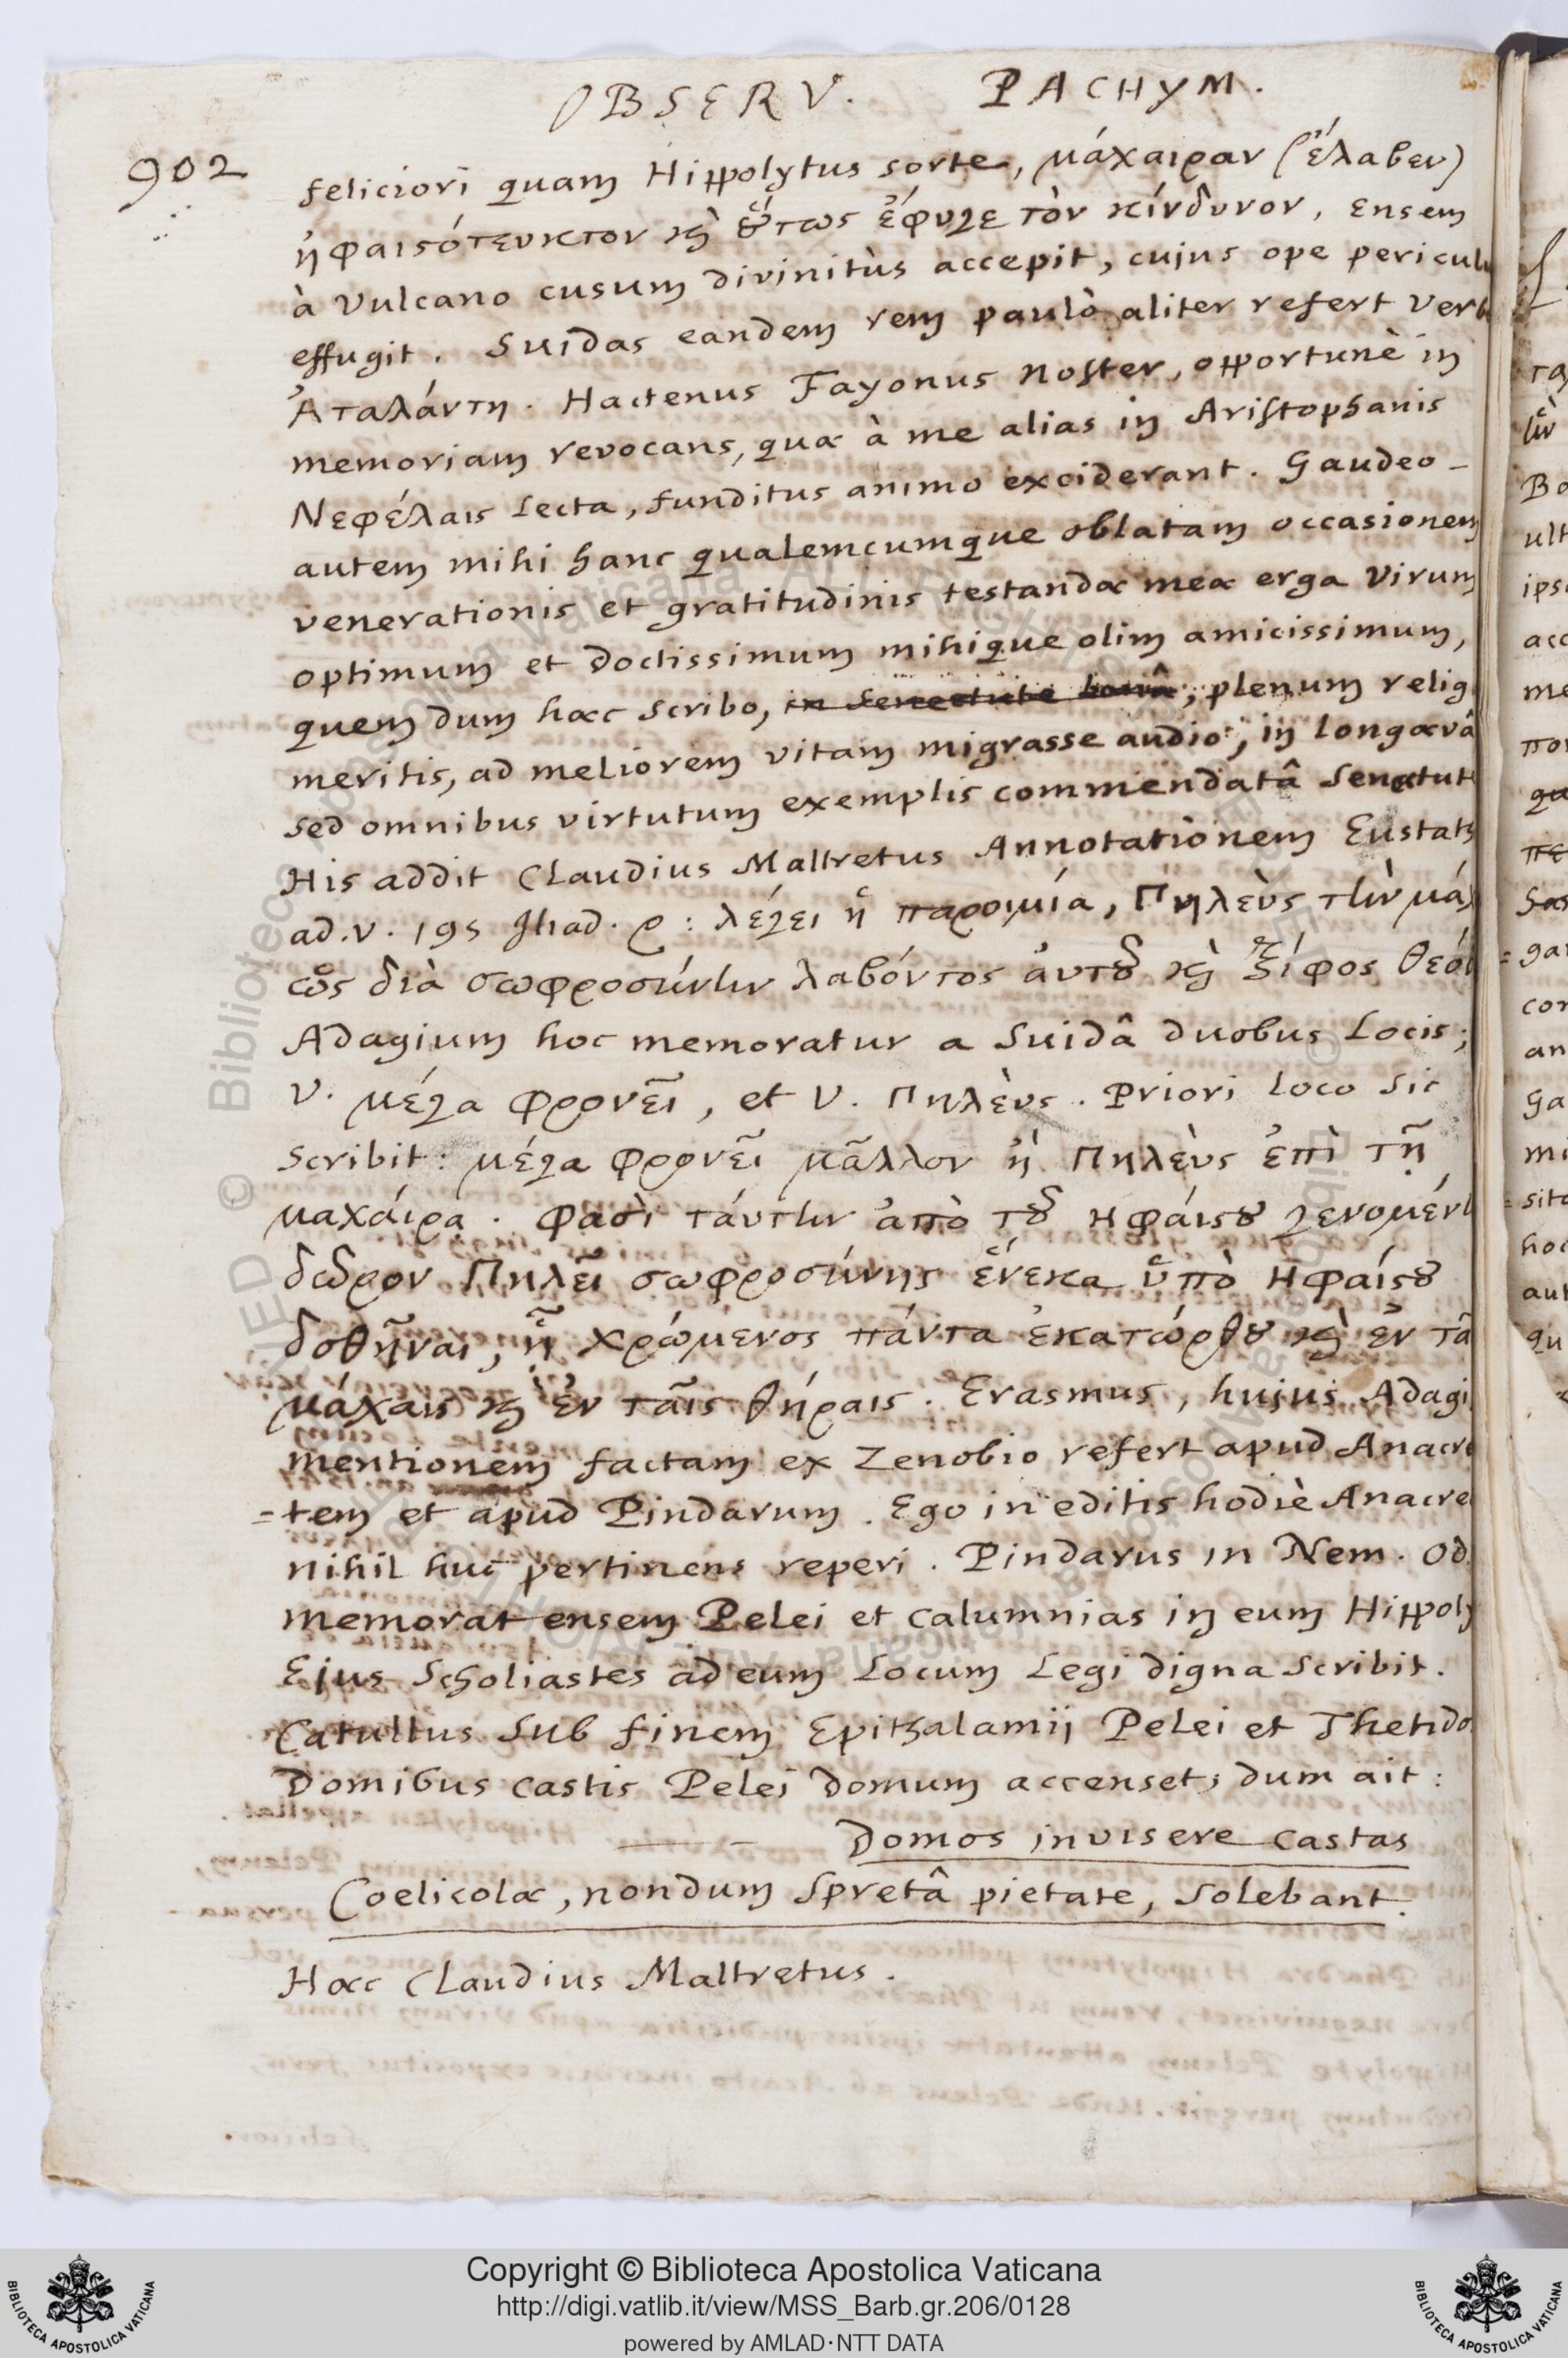 OBSERV. PACHYM.
902
feliciori quam Hippolytus sorte, μάχαιραν (ἔλαβεν)
ἡφαιςότευκτον καὶ ὅυτως ἔφυγε τὸν κίνδυνον, ensem
à Vulcano cusum divinitùs accepit, cujus ope pericul
effugit. Suidas eandem rem paulò aliter refert verb
Ἀταλάντη. Hactenus Fayonus noster, opportunè in
memoriam revocans, quæ à me alias in Aristophanis
Νεφέλαις lecta, funditus animo exciderant. Gaudeo
autem mihi hanc qualemcumque oblatam occasionem
venerationis et gratitudinis testandæ meæ erga virum
optimum et doctissimum mihique olim amicissimum,
quem dum hæc scribo, in senectute bonâ, plenum relig
meritis, ad meliorem vitam migrasse audio, in longævâ
sed omnibus virtutum exemplis commendatâ senectut
His addit Claudius Maltretus Annotationem Eustath
ad. v. 195 Iliad. ρ: λέγει ἡ παροιμία, Πηλεὺς τὴν μάχ
ὡς διὰ σωφροσύνην λαβόντος ἀυτοῦ καὶ ξίφος θεό
Adagium hoc memoratur a Suidâ duobus locis;
V. μέγα φρονεῖ, et V. Πηλεὺς. Priori loco sic
scribit: μέγα φρονεῖ μᾶλλον ἢ Πηλεὺς ἐπὶ τῇ
μαχάιρᾳ. φασὶ τάυτην ἀπὸ τοῦ Ηφάιςου γενομέν
δῶρον Πηλεῖ σωφροσύνης ἕνεκα ὑπὸ Ηφαίςου
δοθῆναι, ᾗ χρώμενος πάντα ἐκατώρθου καὶ ἐν τᾶ
μάχαις καὶ ἐν ταῖς θήραις. Erasmus, hujus Adagi
mentionem factam ex Zenobio refert apud Anacre
=tem et apud Pindarum. Ego in editis hodiè Anacre
nihil huc pertinens reperi. Pindarus in Nem. Od.
memorat ensem Pelei et calumnias in eum Hippoly
Ejus Scholiastes ad eum locum legi digna scribit.
Catullus sub finem Epithalamij Pelei et Thetido
Domibus castis Pelei domum accenset, dum ait:
Domos invisere castas
Coelicolæ, nondum spretâ pietate, solebant.
Hæc Claudius Maltretus.
Copyright © Biblioteca Apostolica Vaticana
http://digi.vatlib.it/view/MSS_Barb.gr.206/0128
powered by AMLAD·NTT DATA
BIBLIOTECA APOSTOLICA VATICANA
BIBLIOTECA APOSTOLICA VATICANA